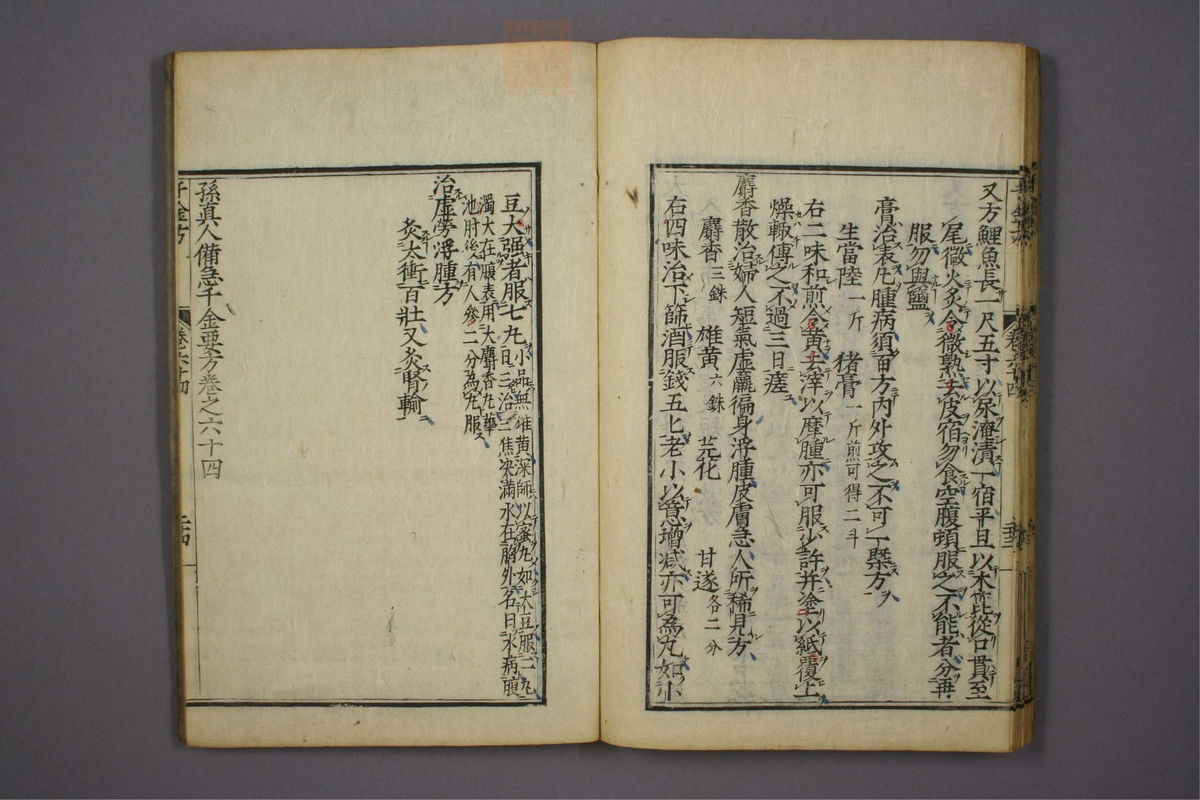 又方鯉魚長一尺五寸以尿淹漬一宿平旦以木篦從口貫至
尾微火炙令微熟去皮宿勿食空腹頓服之不能者分再
服勿與鹽
膏治表凡腫病須百方内外攻之不可一槩方
生當陸一斤 猪膏一斤煎可得二斗
右二味和煎令黄去滓以摩腫亦可服少許并塗以紙覆上
燥輙傅之不過三日瘥
麝香散治婦人短氣虚羸徧身浮腫皮膚急人所稀見方
麝香三銖 雄黄六銖 芫花 甘遂各二分
右四味治下篩酒服錢五匕老小以意增减亦可為丸如小
豆大强者服七丸小品無雄黄深師以蜜丸如大豆服二丸
日三治三焦决滿水在胸外名曰水病腹
濁大在腹表用大麝香丸華
池肘後有人參二分為丸服
治虚勞浮腫方
灸太衝百壯又灸腎輸
孫真人備急千金要方卷之六十四
千金方
卷六十四